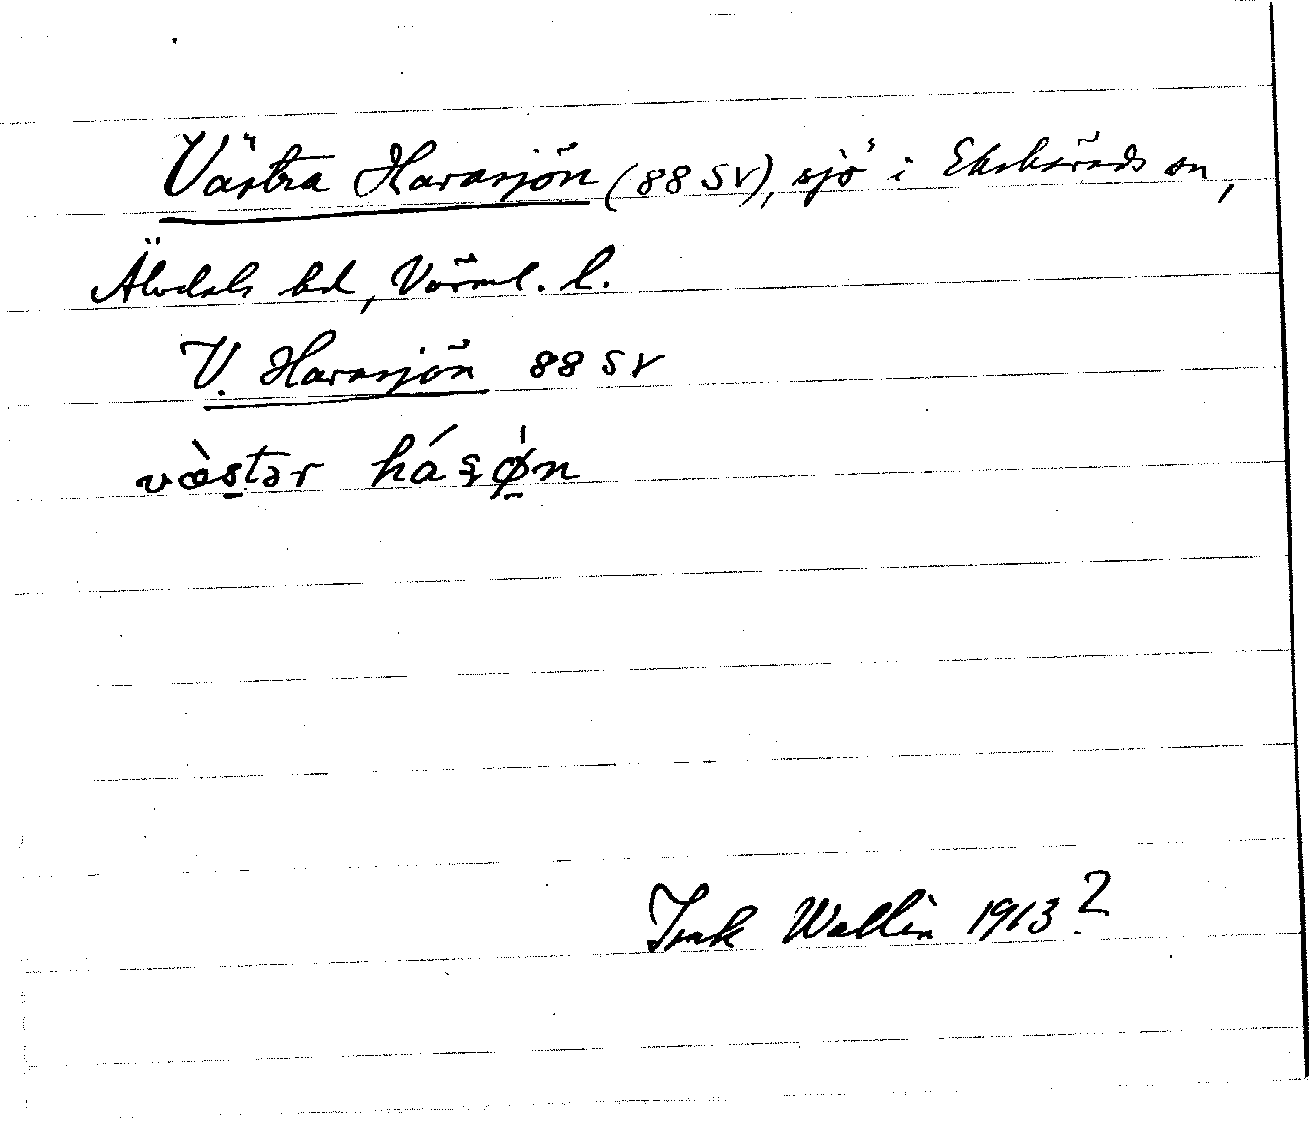 Västra Harasjön (88 SV), sjö i Ekshärads sn,
Älvdals hd, Värml. l.
V. Harasjön 88 SV
væ̀stər háʂøn
Isak Wallin 1913?